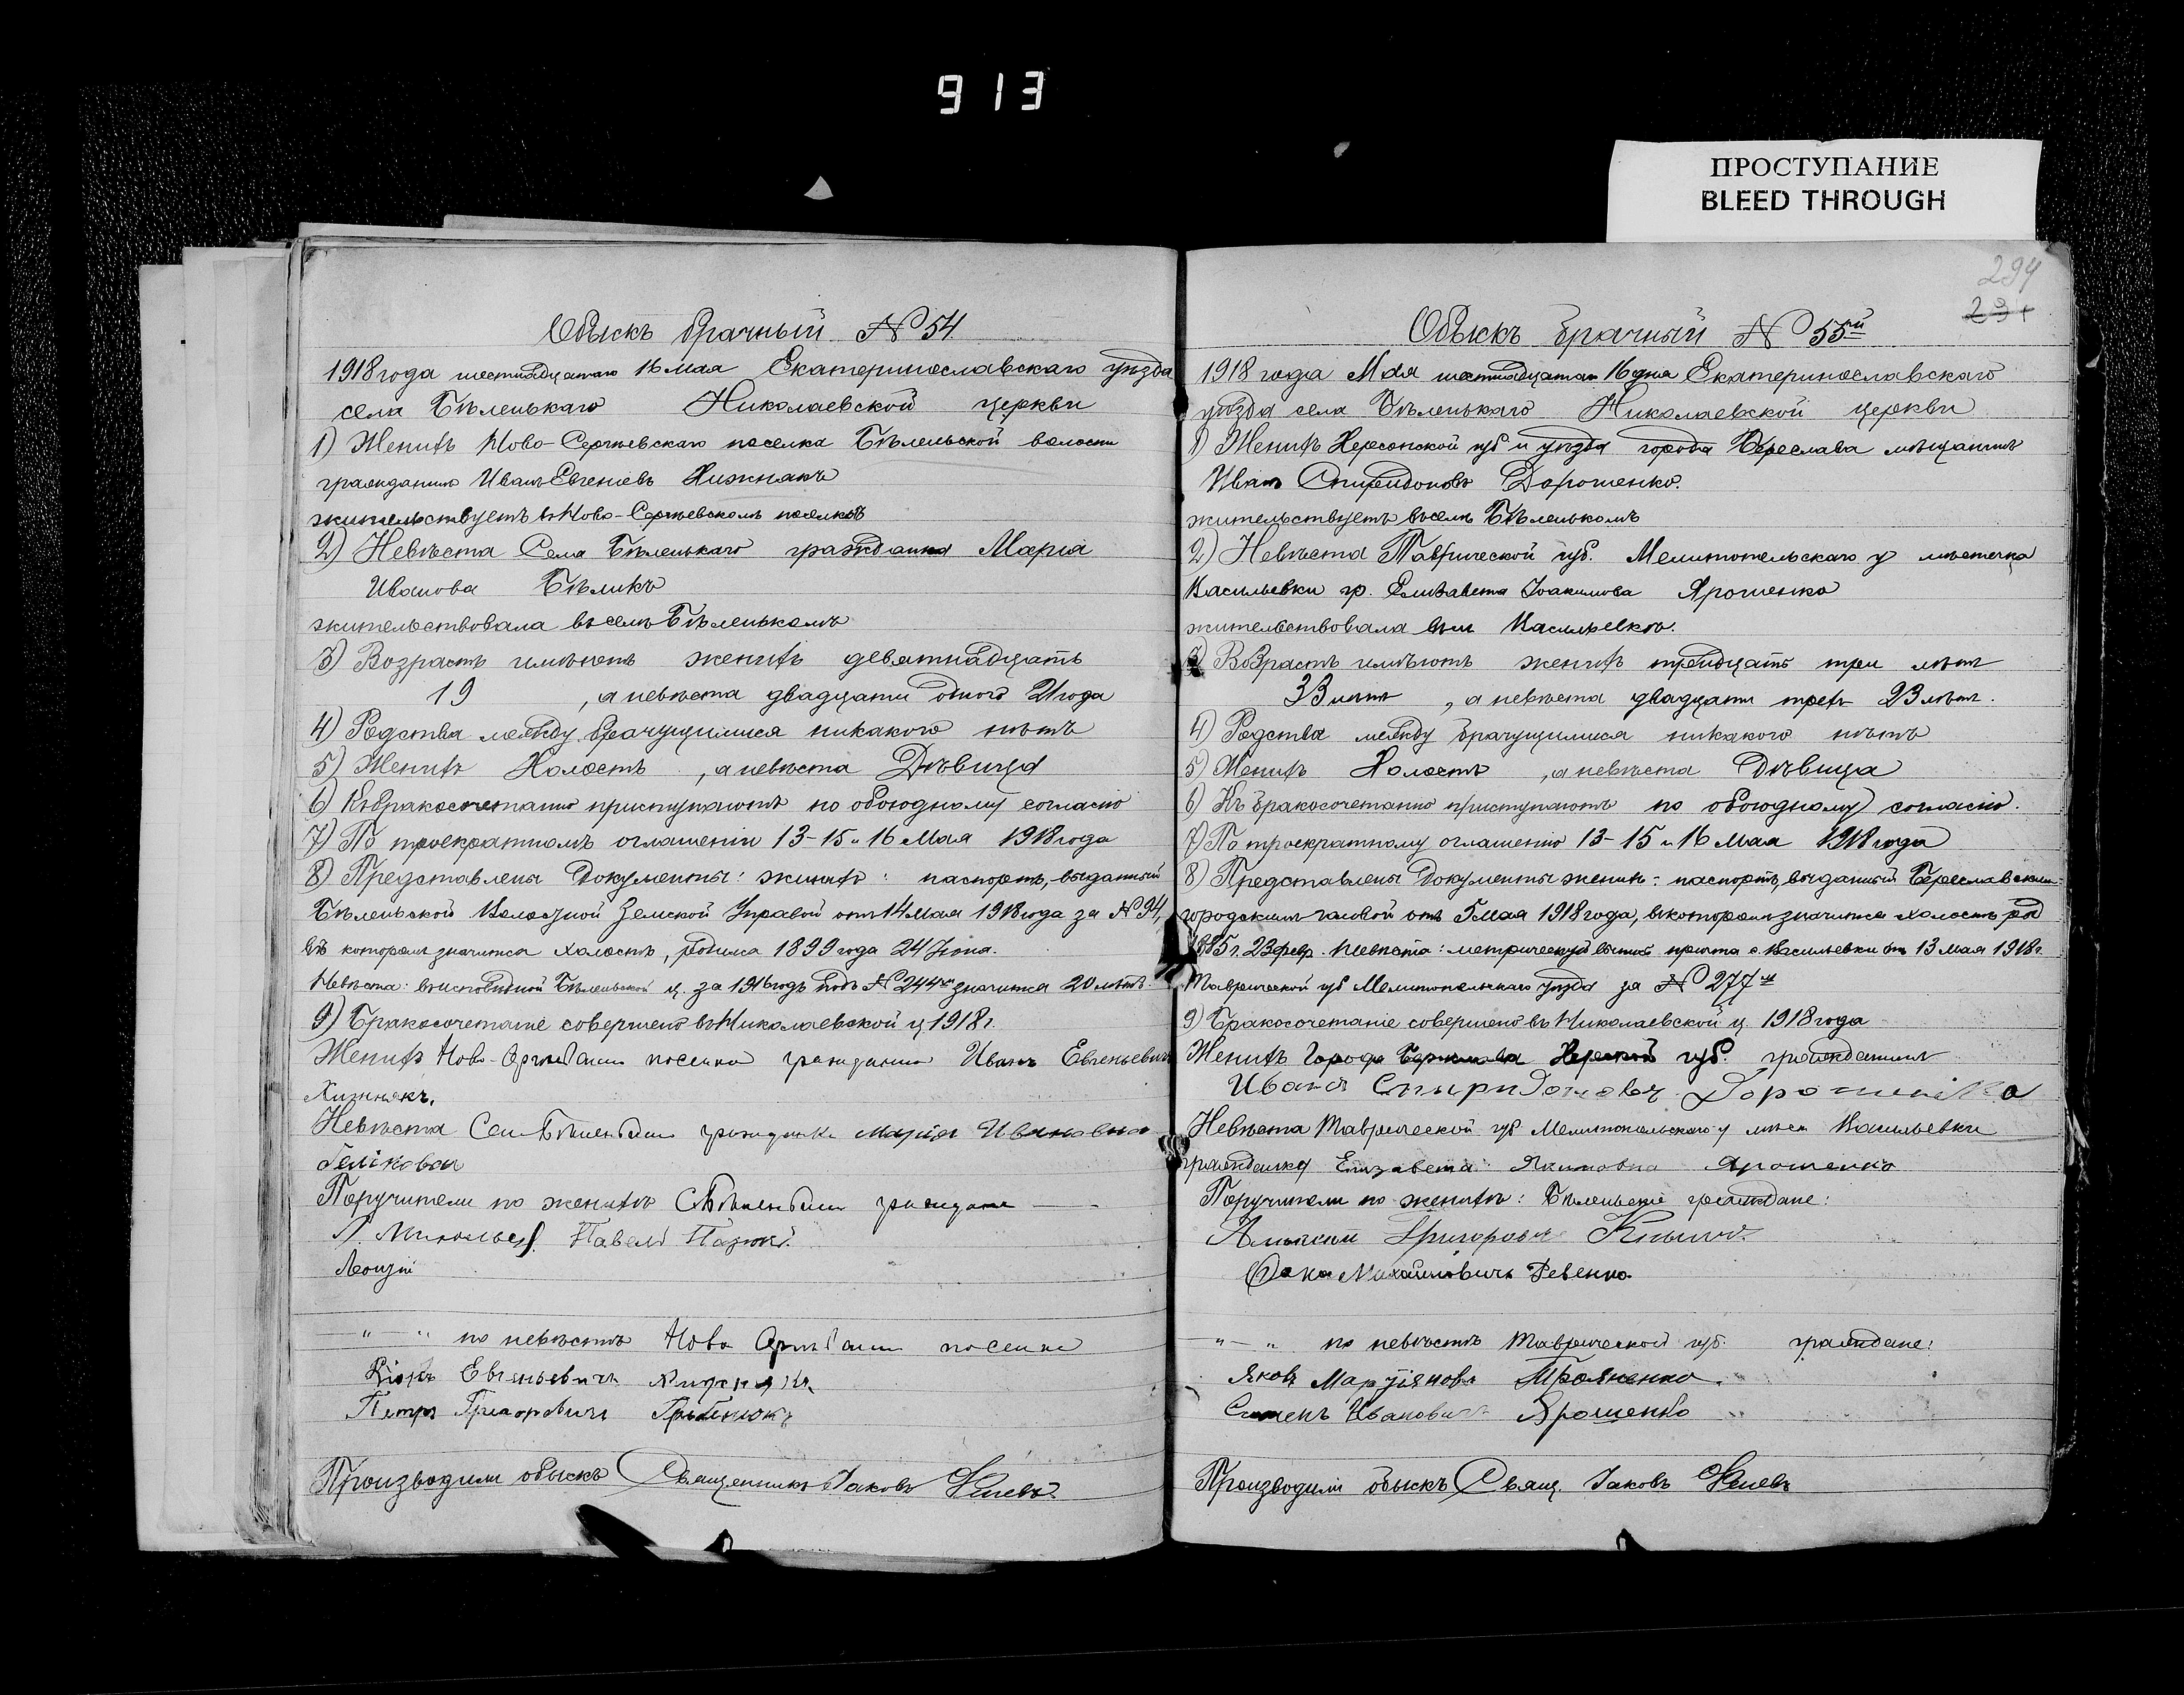 913
ПРОСТУПАНИЕ
BLEED THROUGH
Обыскъ брачный № 54
1918 года шестнадцатаго 16 мая Екатеринославскаго уѣзда
села Бѣленькаго Николаевской церкви
1) Женихъ Ново-Сергѣевскаго поселка Бѣленьской волости
гражданинъ Иванъ Евгеніевъ Хижнякъ
жительствуетъ въ Ново-Сергѣевскомъ поселкѣ
2) Невѣста Села Бѣленькаго гражданка Марія
Иванова Бѣликъ
жительствовала въ селѣ Бѣленькомъ
3) Возрастъ имѣютъ женихъ девятнадцать
19 , а невѣста двадцати одного 21 года
4) Родства между брачущимися никакого нѣтъ
5) Женихъ Холостъ , а невѣста Дѣвица
6) Къ бракосочетанію приступаютъ по обоюдному согласію
7) По троекратномъ оглашеніи 13-15 и 16 Мая 1918 года
8) Представлены Документы: жениха: паспортъ, выданный
Бѣленьской Волостной Земской Управой отъ 14 Мая 1918 года за № 94,
въ которомъ значится холостъ, родился 1899 года 24 Іюня.
Невѣста: въ исповѣдной Бѣленьской ц. за 1916 годъ подъ № 244 значится 20 лѣтъ.
9) Бракосочетаніе совершено въ Николаевской ц 1918 г.
Женихъ Ново- поселка гражданинъ Иванъ Евгеньевичъ
Хижнякъ.
Невѣста гражданка Марія Ивановна
Беликова
Поручители по женихѣ граждане
Павелъ
по невѣстѣ Ново поселка
Евгеньевичъ Хижнякъ
Петръ Григоровичъ
Производили обыскъ Священникъ Іаковъ
294
Обыскъ брачный № 55й
1918 года Мая шестнадцатаго 16 дня Екатеринославскаго
уѣзда села Бѣленькаго Николаевской церкви
1) Женихъ Херсонской губ и уѣзда города Береслава мѣщанинъ
Иванъ Спиридоновъ Дорошенко.
жительствуетъ въ селѣ Бѣленькомъ
2) Невѣста Таврической губ. Мелитопольскаго у мѣстечка
Васильевки гр. Елизавета Іоакимова Ярошенко
жительствовала въ м Васильевкѣ.
3) Возрастъ имѣютъ женихъ тридцать три лѣтъ
33 лѣтъ , а невѣста двадцати трехъ 23 лѣтъ.
4) Родства между брачущимися никакого нѣтъ
5) Женихъ Холостъ , а невѣста Дѣвица
6) Къ бракосочетанію приступаютъ по обоюдному согласію.
7) По троекратному оглашенію 13-15 и 16 Мая 1918 года
8) Представлены Документы жених: паспортъ, выданный Береславским
городским головой отъ 5 мая 1918 года, въ котором значится холостъ род
1885 г. 23 февр. Невѣста: метрическую причта с. Васильевки отъ 13 мая 1918 г.
Таврической губ Мелитопольскаго уѣзда за № 277
9) Бракосочетаніе совершено въ Николаевской ц 1918 года
Женихъ Города губ. гражданинъ
Иванъ Спыридоновъ Дорошенко
Невѣста Таврической губ Мелитопольскаго у мѣст Васильевки
гражданка Елизавета Якимовна Ярошенко
Поручители по женихѣ: Бѣленьскіе граждане:
Алексѣй Григоровъ
Михайловичъ Ревенко
по невѣстѣ Таврической губ. граждане:
Яковъ
Семенъ Ивановичъ Ярошенко
Производили обыскъ Свящ. Іаковъ